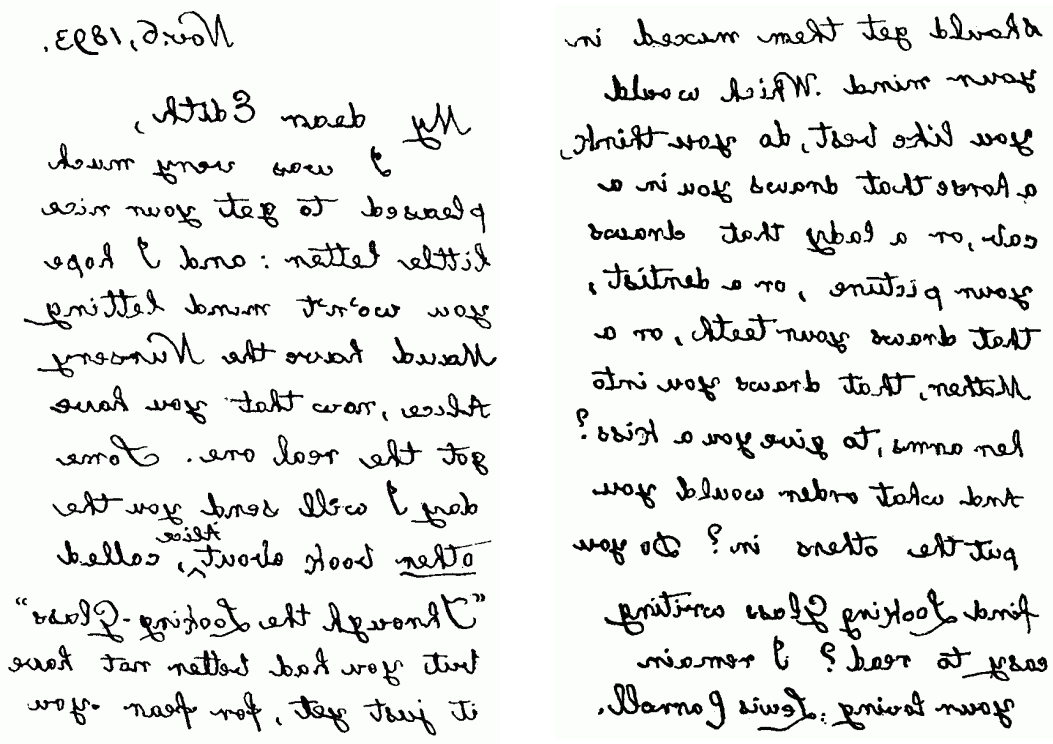 Nov. 6, 1893.
My dear Edith,
I was very much
pleased to get your nice
little letter : and I hope
you wo'n't mind letting
Maud have the Nursery
Alice, now that you have
got the real one. Some
day I will send you the
other book about Alice, called
"Through the Looking-Glass"
but you had better not have
it just yet, for fear you
should get them mixed in
your mind. Which would
you like best, do you think,
a horse that draws you in a
cab, or a lady that draws
your picture, or a dentist,
that draws your teeth, or a
Mother, that draws you into
her arms, to give you a kiss?
And what order would you
put the others in? Do you
find Looking Glass writing
easy to read? I remain
your loving, Lewis Carroll.